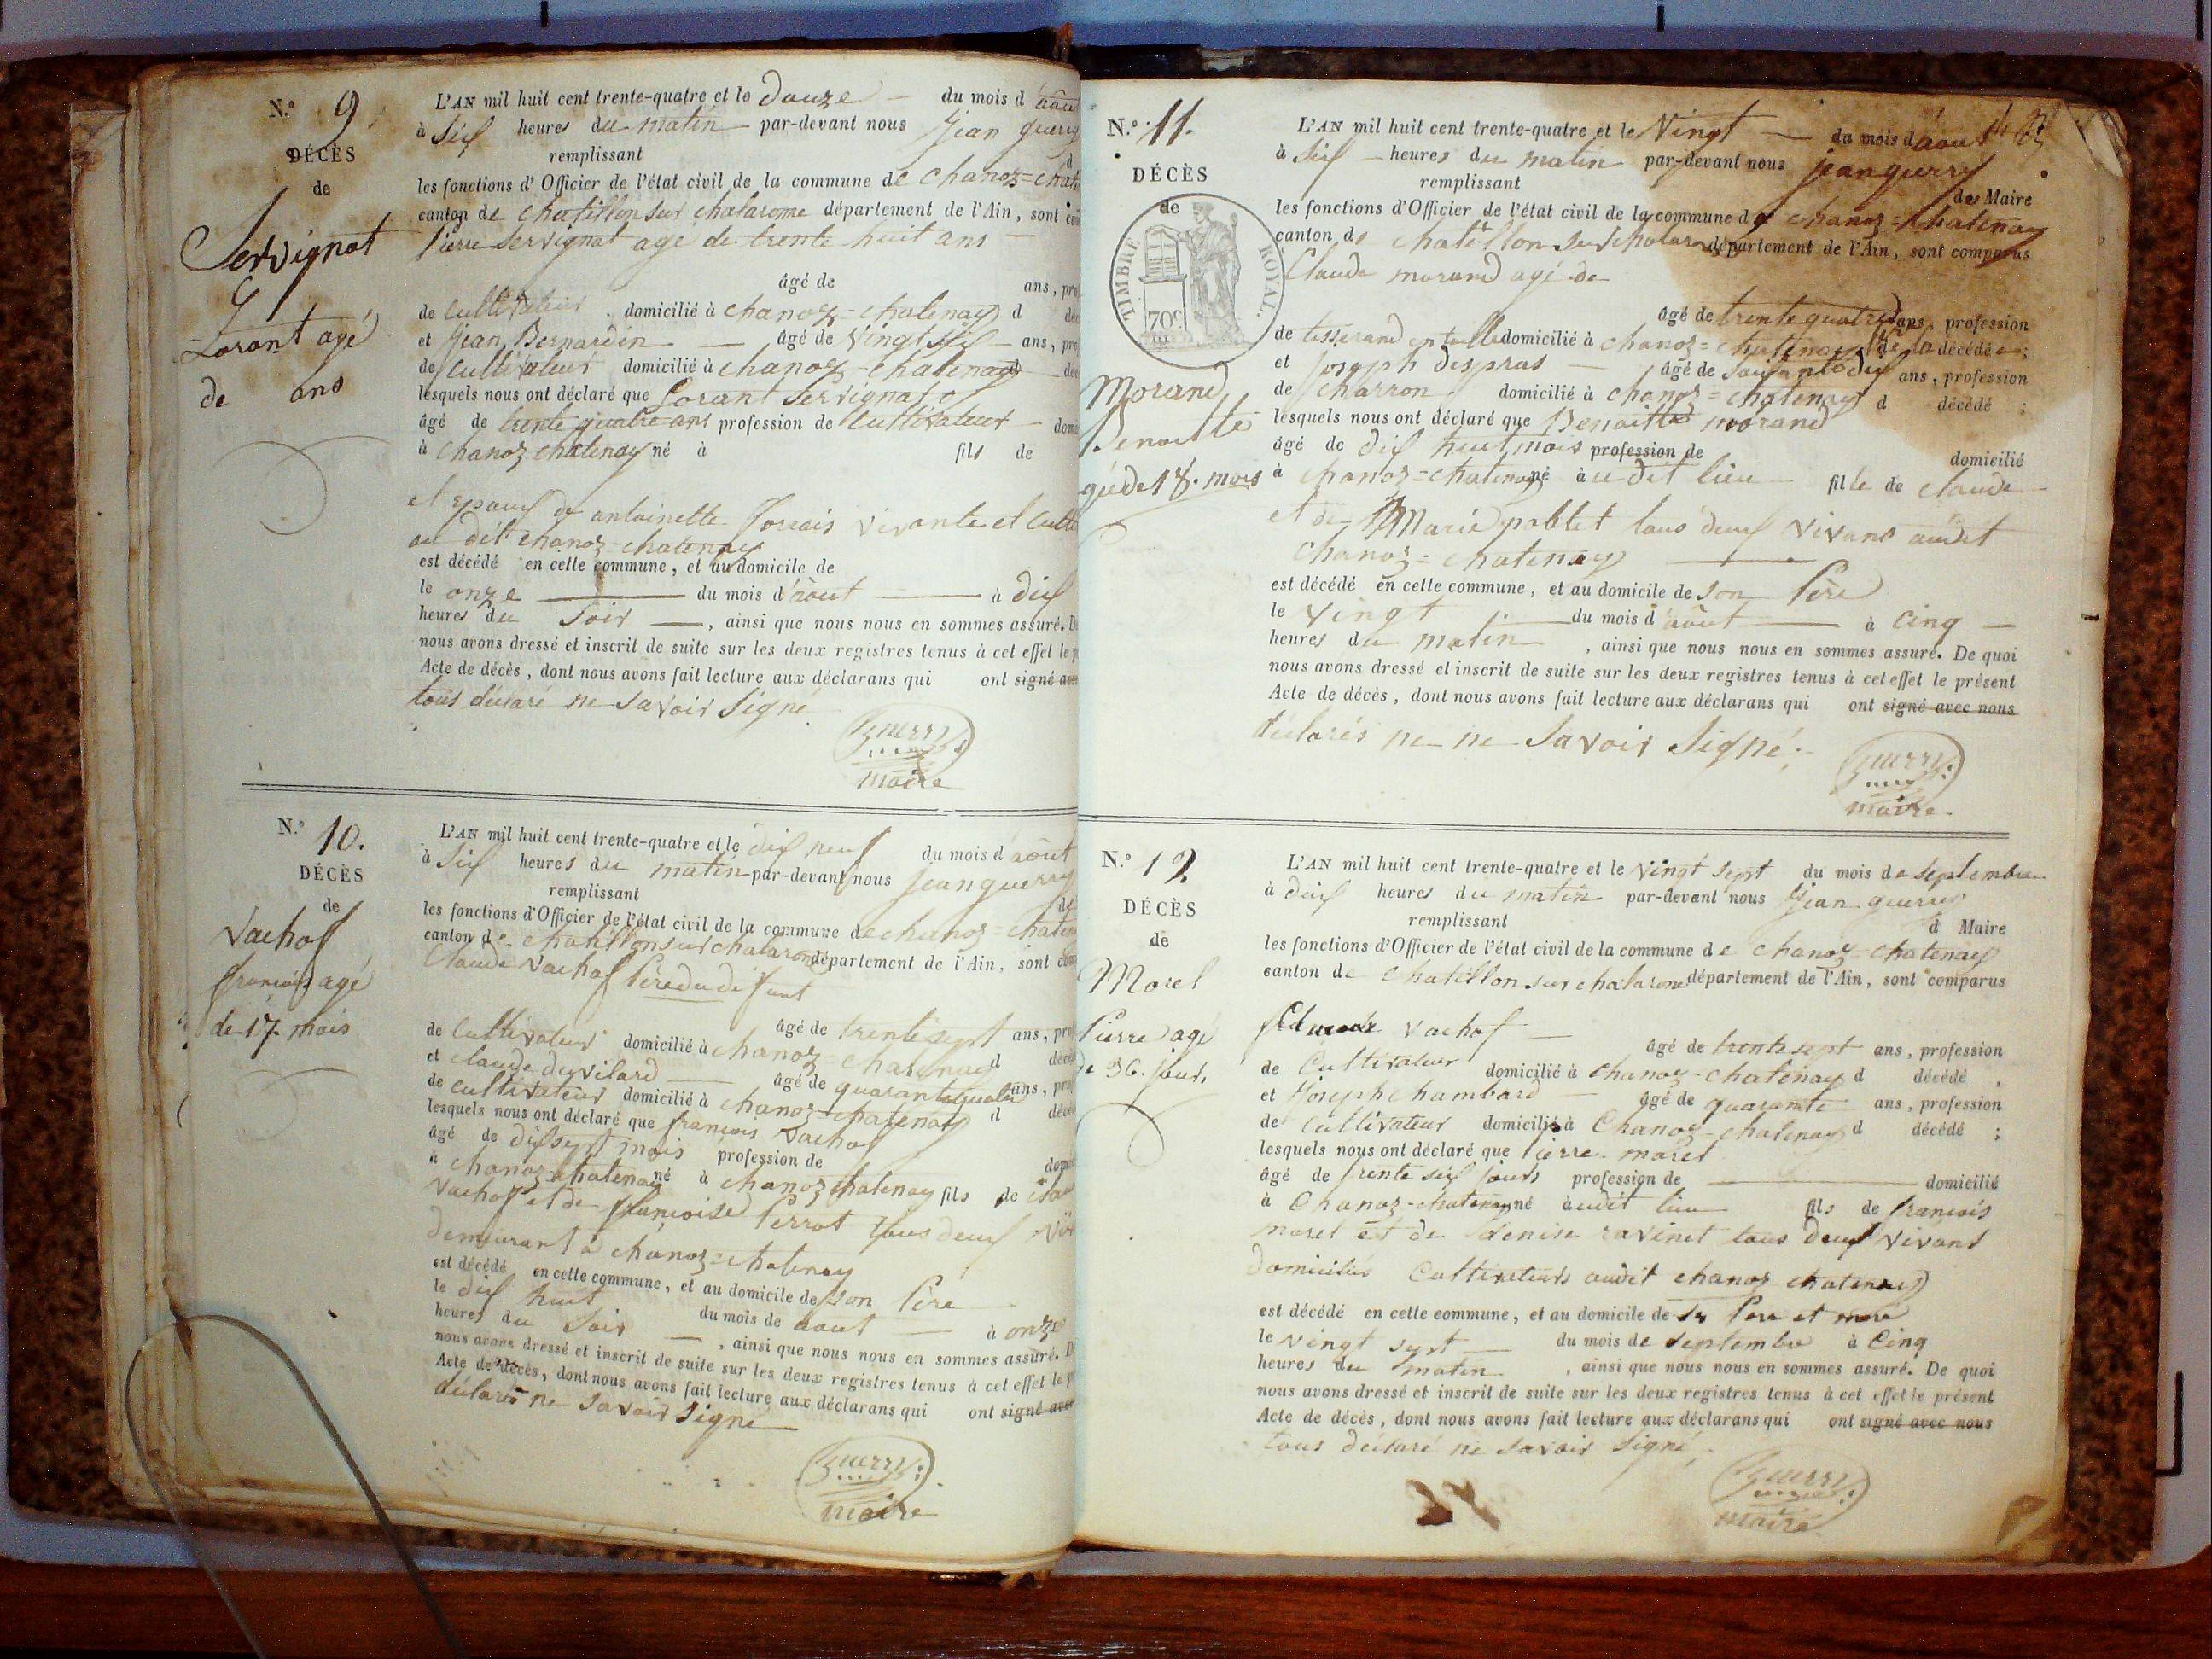 N.° 9
DÉCÈS
de
Servignat
Lorant agé
de ans
L'AN mil huit cent trente-quatre et le douze du mois d'août
à Six heures du matin par-devant nous Jean guerry
remplissant d
les fonctions d'Officier de l'état civil de la commune de chanoz=chate
canton de chatillon sur chalarome département de l'Ain, sont com
Pierre Servignat agé de trente huit ans
âgé de ans, pro
de cultivateur domicilié à chanoz=chatenay d déc
et Jean Bernardin âgé de Vingt Six ans, pro
de Cultivateur domicilié à chanoz-chatenay d déc
lesquels nous ont déclaré que Lorant Servignat
âgé de trente quatre ans profession de Cultivateur domi
à chanoz chatenay né à fils de
et Epoux de antoinette vivante et Culti
au dit chanoz-chatenay
est décédé en cette commune, et au domicile de
le onze du mois d'août à dix
heures du Soir, ainsi que nous nous en sommes assuré. De
nous avons dressé et inscrit de suite sur les deux registres tenus à cet effet le p
Acte de décès, dont nous avons fait lecture aux déclarans qui ont signé avec
tous déclaré ne Savoir Signé
Guerry
maire
N.° 10.
DÉCÈS
de
Vachof
françois agé
de 17. mois
L'AN mil huit cent trente-quatre et le dix neuf du mois d'août
à Six heures du matin par-devant nous Jean guerry
remplissant de
les fonctions d'Officier de l'état civil de la commune de chanoz=chaten
canton de chatillon sur chalarome département de l'Ain, sont com
Claude Vachof Père du difunt
âgé de trente sept ans, pro
de Cultivateur domicilié à chanoz=chatenay d décé
et claude duvilard âgé de quarante quatre ans, pro
de cultivateur domicilié à chanoz-chatenay d décé
lesquels nous ont déclaré que françois Vachof
âgé de dix sept mois profession de domi
à chanoz chatenay né à chanoz chatenay fils de cla
Vachof et de françoise Perrot tous deux viv
demeurant à chanoz=chatenay
est décédé en cette commune, et au domicile de son Père
le dix huit du mois de aout à onze
heures du Soir, ainsi que nous nous en sommes assuré. D
nous avons dressé et inscrit de suite sur les deux registres tenus à cet effet le p
Acte de décès, dont nous avons fait lecture aux déclarans qui ont signé avec
déclarés ne Savoir Signé
Guerry
maire
N.° 11.
DÉCÈS
de
TIMBRE ROYAL.
70c
Morand
Benoitte
gé de 18. mois
L'AN mil huit cent trente-quatre et le Vingt du mois d'aout
à Six heures du matin par-devant nous jean guerry
remplissant de Maire
les fonctions d'Officier de l'état civil de la commune de chanoz=chatenay
canton de chatillon sur chalarome département de l'Ain, sont comparus
Claude morand agé de
âgé de trente quatre ans, profession
de tisserand en toille domicilié à chanoz=chatenay de la décédée;
et Joseph despras âgé de Soixante dix ans, profession
de charron domicilié à chanoz=chatenay d décédé;
lesquels nous ont déclaré que Benoitte morand
âgé de dix huit mois profession de domicilié
à chanoz=chatenay né à ce dit lieu fille de claude
et de Marie poblet tous deux vivans audit
chanoz=chatenay
est décédé en cette commune, et au domicile de Son Père
le vingt du mois d'août à cinq
heures du matin, ainsi que nous nous en sommes assuré. De quoi
nous avons dressé et inscrit de suite sur les deux registres tenus à cet effet le présent
Acte de décès, dont nous avons fait lecture aux déclarans qui ont signé avec nous
déclarés ne ne Savoir Signé.
Guerry
maire.
N.° 12
DÉCÈS
de
Morel
Pierre agé
de 36. jours
L'AN mil huit cent trente-quatre et le vingt sept du mois de septembre
à dix heures du matin par-devant nous Jean guerry
remplissant d Maire
les fonctions d'Officier de l'état civil de la commune de chanoz-chatenay
canton de chatillon sur chalarome département de l'Ain, sont comparus
Claude Vachof
âgé de trente sept ans, profession
de Cultivateur domicilié à chanoz-chatenay d décédé,
et Joseph chambard âgé de quarante ans, profession
de Cultivateur domicilié à Chanoz-chatenay d décédé;
lesquels nous ont déclaré que Pierre morel
âgé de trente six jours profession de domicilié
à Chanoz-chatenay né à audit lieu fils de françois
morel et de denise ravinet tous deux vivans
domiciliés Cultivateurs audit chanoz chatenay
est décédé en cette commune, et au domicile de Ses Père et mère
le vingt sept du mois de septembre à Cinq
heures du matin, ainsi que nous nous en sommes assuré. De quoi
nous avons dressé et inscrit de suite sur les deux registres tenus à cet effet le présent
Acte de décès, dont nous avons fait lecture aux déclarans qui ont signé avec nous
tous déclaré ne Savoir Signé,
Guerry
maire